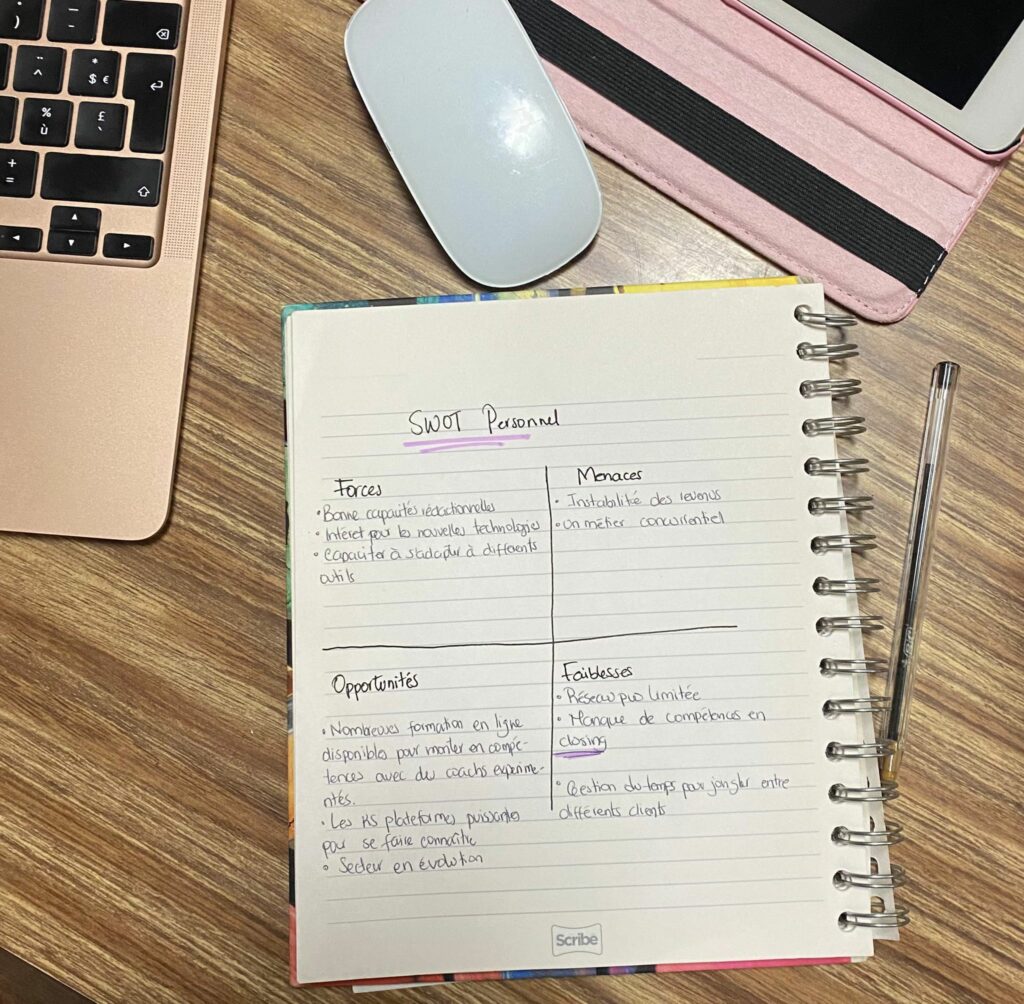 SWOT Personnel
Forces
• Bonne capacités rédactionnelles
• Intéret pour les nouvelles technologies
• Capaciter à s'adapter à différents
outils
Menaces
• Instabilité des revenus
• Un métier concurrentiel
Opportunités
• Nombreuses formation en ligne
disponibles pour monter en compé-
tences avec des coachs expérime-
ntés.
• Les RS plateformes puissantes
pour se faire connaître
• Secteur en évolution
Faiblesses
• Réseau pro limitée
• Manque de compétences en
closing
• Gestion du temps pour jongler entre
différents clients
Scribe